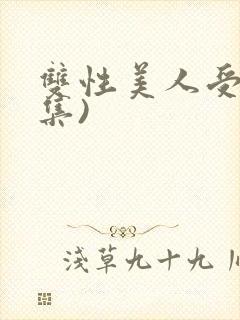 雙性美人受
集)
淺草九十九